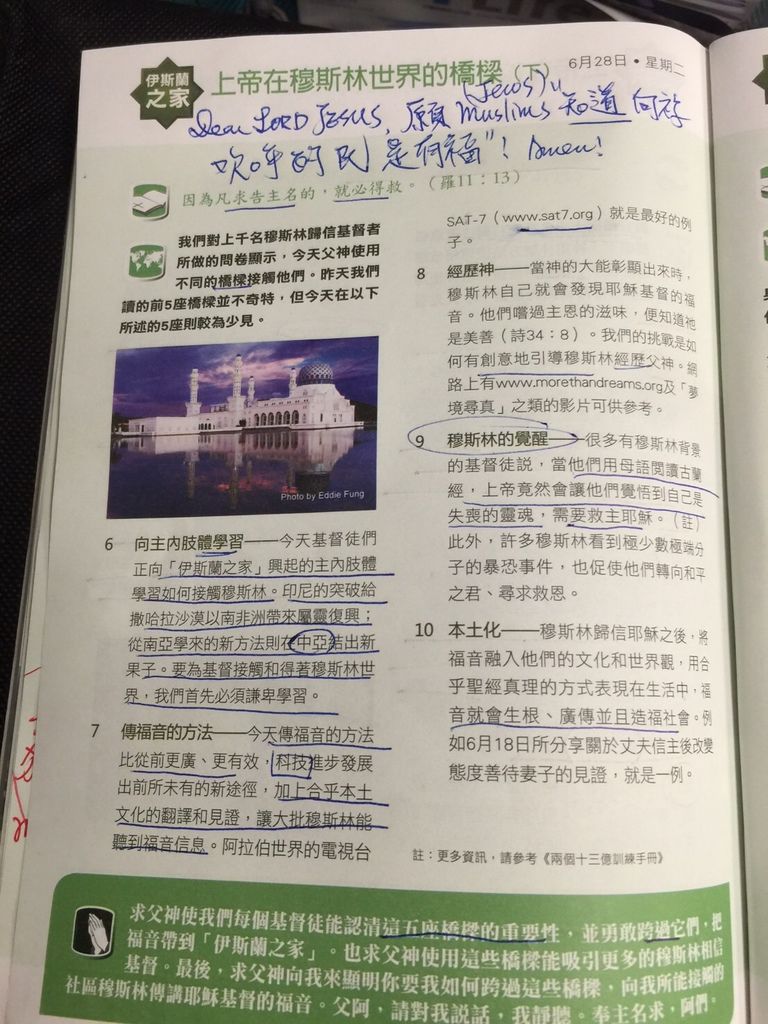 伊斯蘭
之家
上帝在穆斯林世界的橋樑（下）
6月28日 • 星期二
(Jews)
Dear LORD JESUS, 願 Muslims 知道 向祢
的民 是有福"! Amen!
因為凡求告主名的，就必得救。（羅11：13）
我們對上千名穆斯林歸信基督者
所做的問卷顯示，今天父神使用
不同的橋樑接觸他們。昨天我們
讀的前5座橋樑並不奇特，但今天在以下
所述的5座則較為少見。
Photo by Eddie Fung
6 向主內肢體學習——今天基督徒們
正向「伊斯蘭之家」興起的主內肢體
學習如何接觸穆斯林。印尼的突破給
撒哈拉沙漠以南非洲帶來屬靈復興；
從南亞學來的新方法則在中亞結出新
果子。要為基督接觸和得著穆斯林世
界，我們首先必須謙卑學習。
7 傳福音的方法——今天傳福音的方法
比從前更廣、更有效，科技進步發展
出前所未有的新途徑，加上合乎本土
文化的翻譯和見證，讓大批穆斯林能
聽到福音信息。阿拉伯世界的電視台
SAT-7（www.sat7.org）就是最好的例
子。
8 經歷神——當神的大能彰顯出來時，
穆斯林自己就會發現耶穌基督的福
音。他們嚐過主恩的滋味，便知道祂
是美善（詩34：8）。我們的挑戰是如
何有創意地引導穆斯林經歷父神。網
路上有www.morethandreams.org及「夢
境尋真」之類的影片可供參考。
9 穆斯林的覺醒——很多有穆斯林背景
的基督徒說，當他們用母語閱讀古蘭
經，上帝竟然會讓他們覺悟到自己是
失喪的靈魂，需要救主耶穌。（註）
此外，許多穆斯林看到極少數極端分
子的暴恐事件，也促使他們轉向和平
之君、尋求救恩。
10 本土化——穆斯林歸信耶穌之後，將
福音融入他們的文化和世界觀，用合
乎聖經真理的方式表現在生活中，福
音就會生根、廣傳並且造福社會。例
如6月18日所分享關於丈夫信主後改變
態度善待妻子的見證，就是一例。
註：更多資訊，請參考《兩個十三億訓練手冊》
求父神使我們每個基督徒能認清這五座橋樑的重要性，並勇敢跨過它們，把
福音帶到「伊斯蘭之家」。也求父神使用這些橋樑能吸引更多的穆斯林相信
基督。最後，求父神向我來顯明你要我如何跨過這些橋樑，向我所能接觸的
社區穆斯林傳講耶穌基督的福音。父阿，請對我說話，我靜聽。奉主名求，阿們。